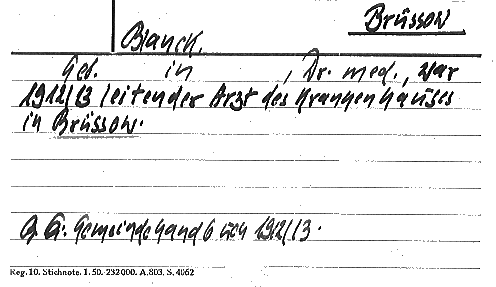 Brüssow
Blanck.
Geb. in , Dr. med., war
1912/13 leitender Arzt des Krankenhauses
in Brüssow.
Q. A.: Gemeindehandbuch 1912/13.
Reg. 10. Stichnote. 1. 50. 232000. A. 803. S. 4062